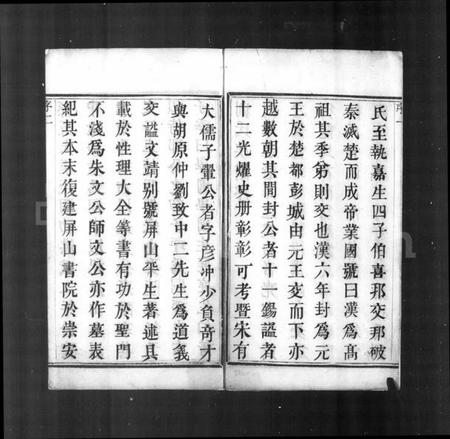 氏至執嘉生四子伯喜邦交邦破
秦滅楚而成帝業國號曰漢為高
祖其季弟則交也漢六年封為元
王於楚都彭城由元王交而下亦
越數朝其間封公者十一錫諡者
十二光燿史册彰彰可考暨宋有
大儒子翬公者字彦冲少負竒才
與胡原仲劉致中二先生為道義
交諡文靖别號屏山平生著述具
載於性理大全等書有功於聖門
不淺為朱文公師文公亦作墓表
紀其本末復建屏山書院於崇安
序二